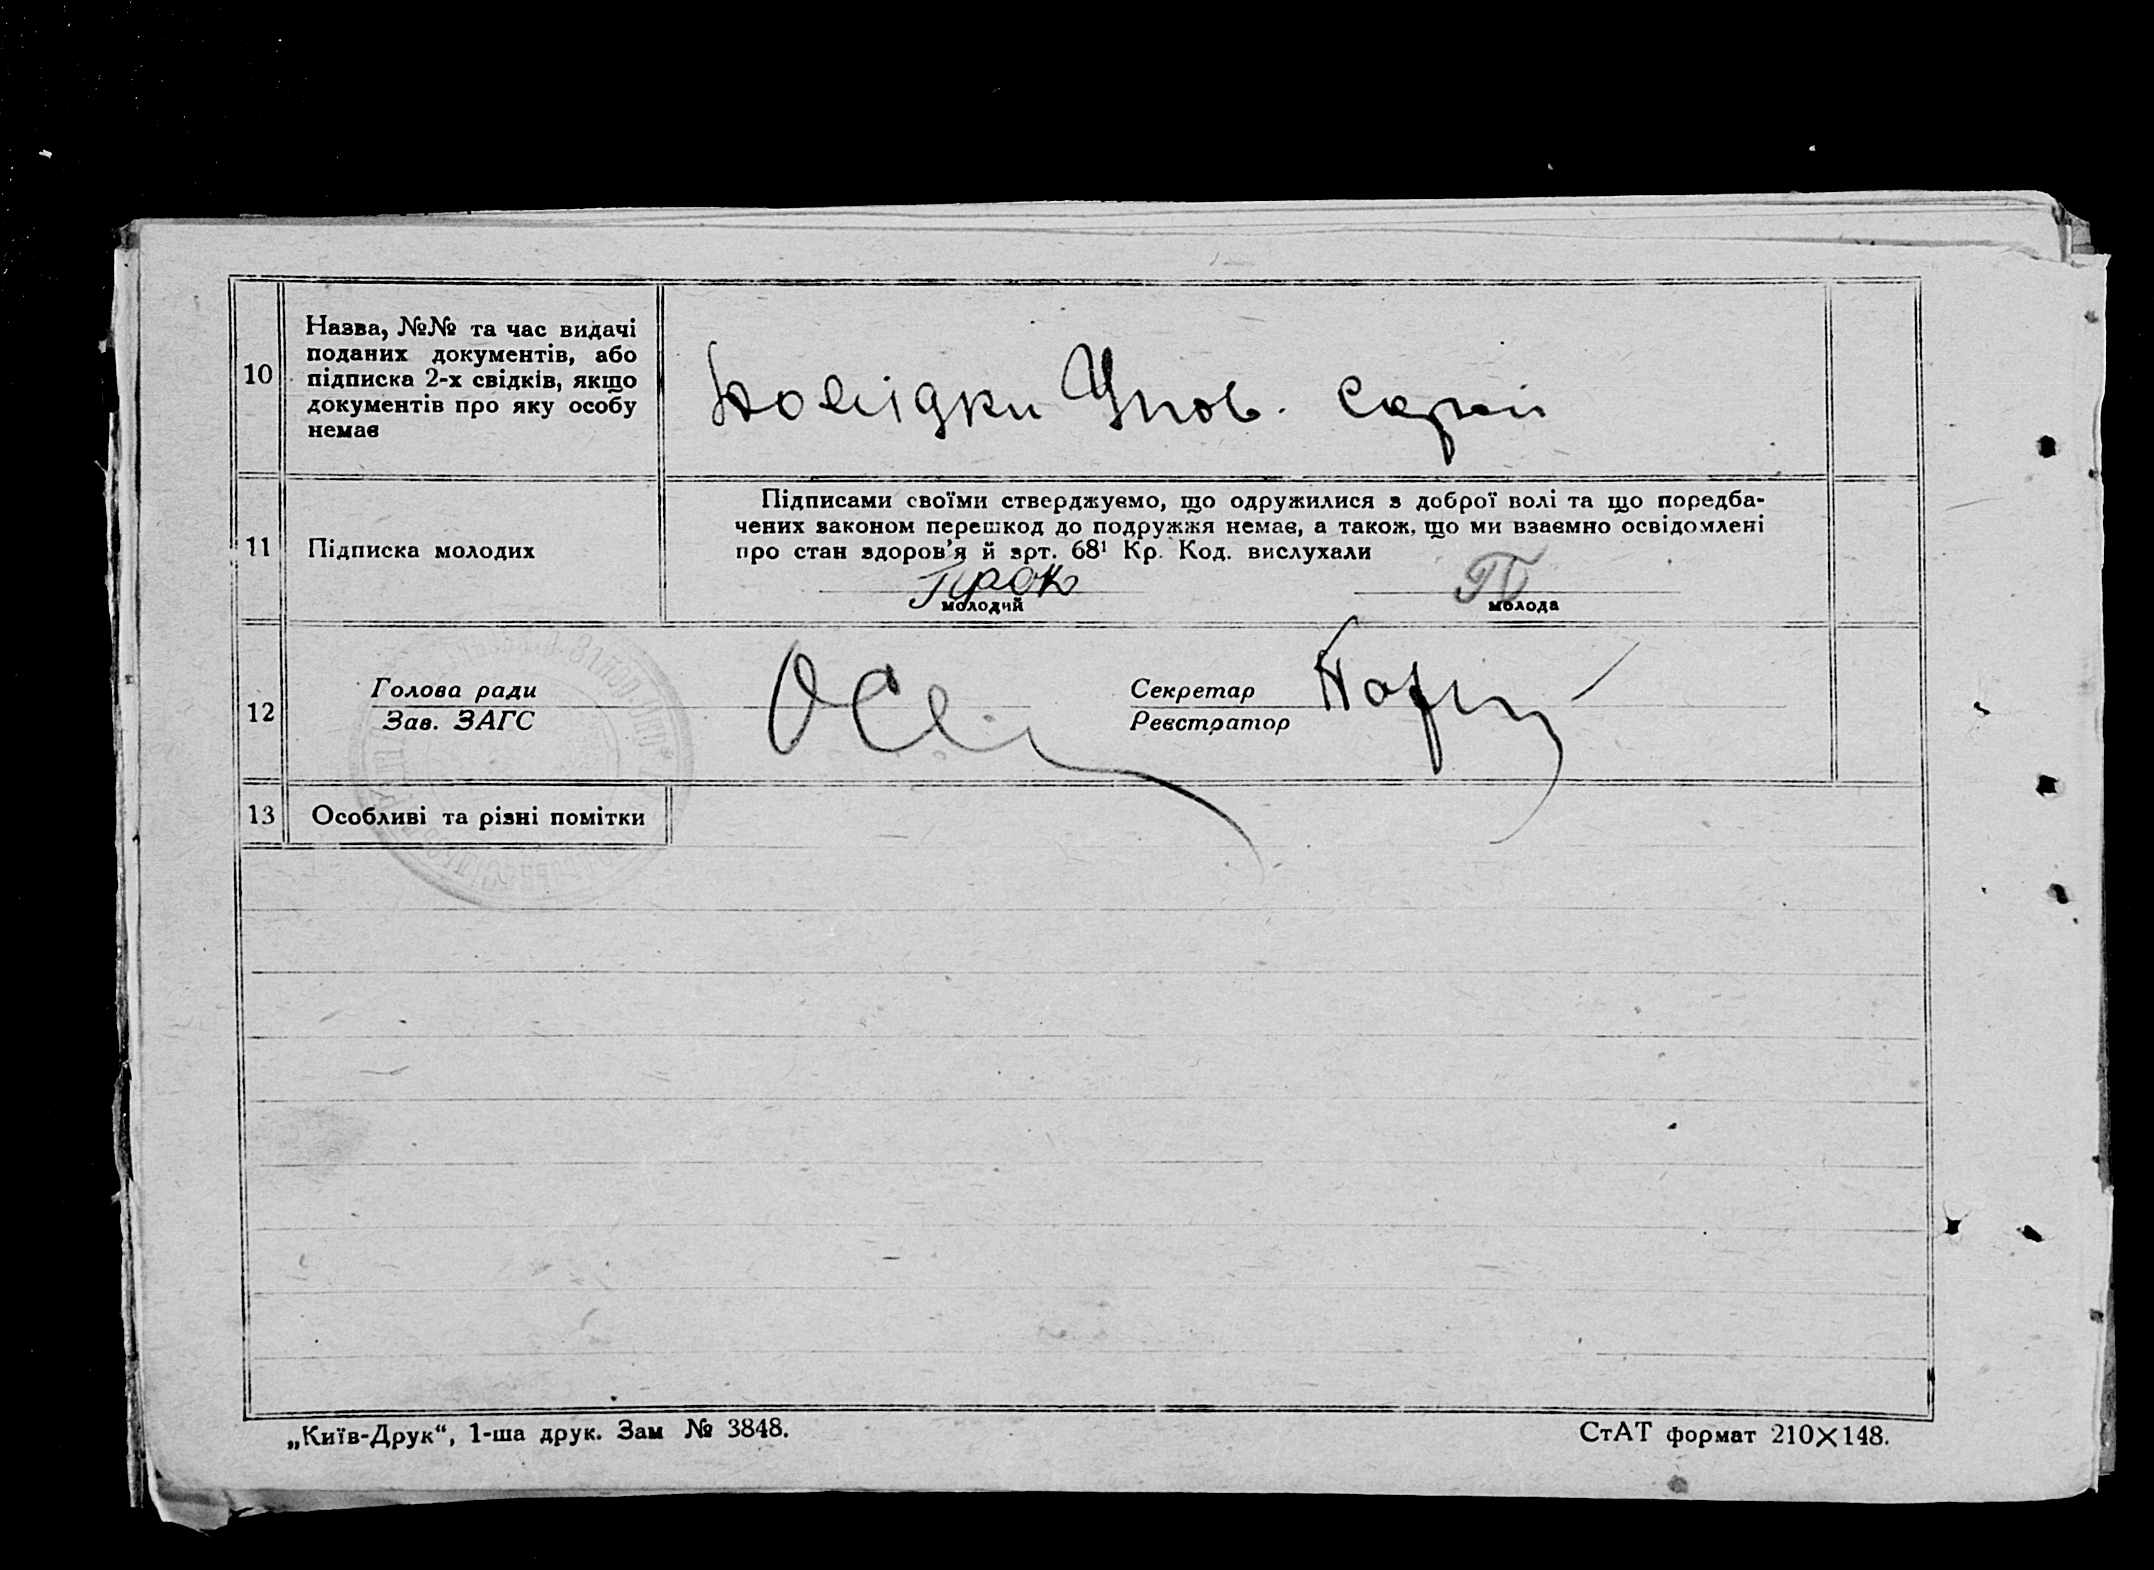 10
Назва, №№ та час видачі
поданих документів, або
підписка 2-х свідків, якщо
документів про яку особу
немає
11
Підписка молодих
Підписами своїми стверджуємо, що одружилися з доброї волі та що поредба-
чених законом перешкод до подружжя немає, а також, що ми взаємно освідомлені
про стан здоров'я й арт. 68¹ Кр. Код. вислухали
молодий
молода
12
Голова ради
Зав. ЗАГС
Секретар
Реєстратор
13
Особливі та різні помітки
„Київ-Друк“, 1-ша друк. Зам № 3848.
СтАТ формат 210×148.